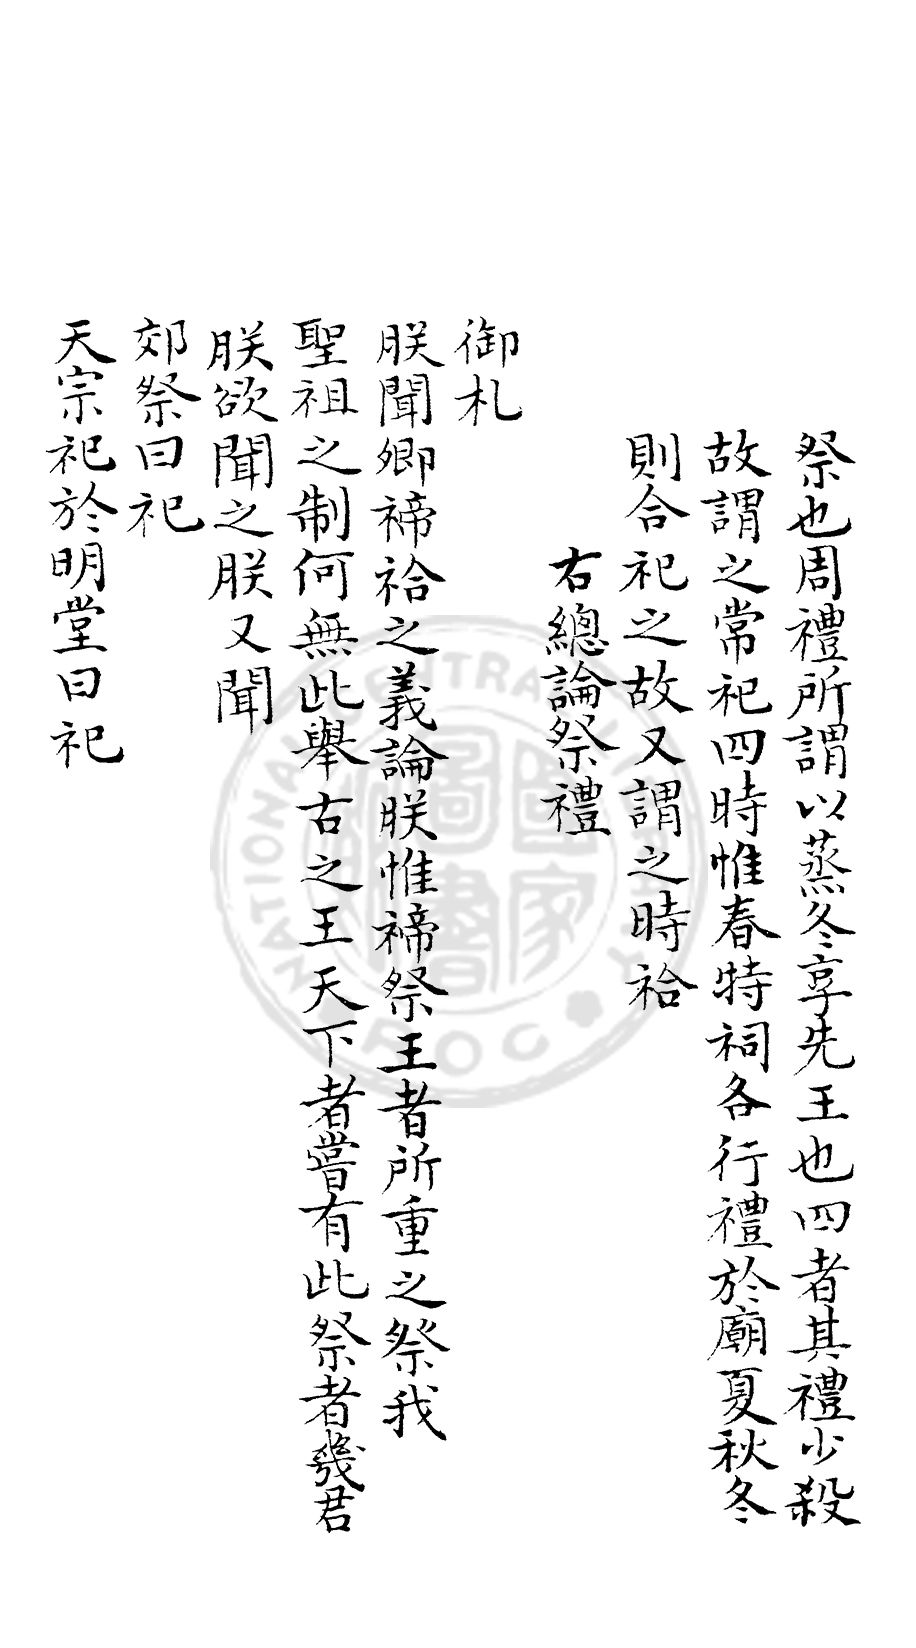 祭也周禮所謂以蒸冬享先王也四者其禮少殺
故謂之常祀四時惟春特祠各行禮於廟夏秋冬
則合祀之故又謂之時祫
右總論祭禮
御札
朕聞卿禘祫之義論朕惟禘祭王者所重之祭我
聖祖之制何無此舉古之王天下者嘗有此祭者幾君
朕欲聞之朕又聞
郊祭曰祀
天宗祀於明堂曰祀
NATIONAL CENTRAL LIBRARY
R.O.C
國家圖書館